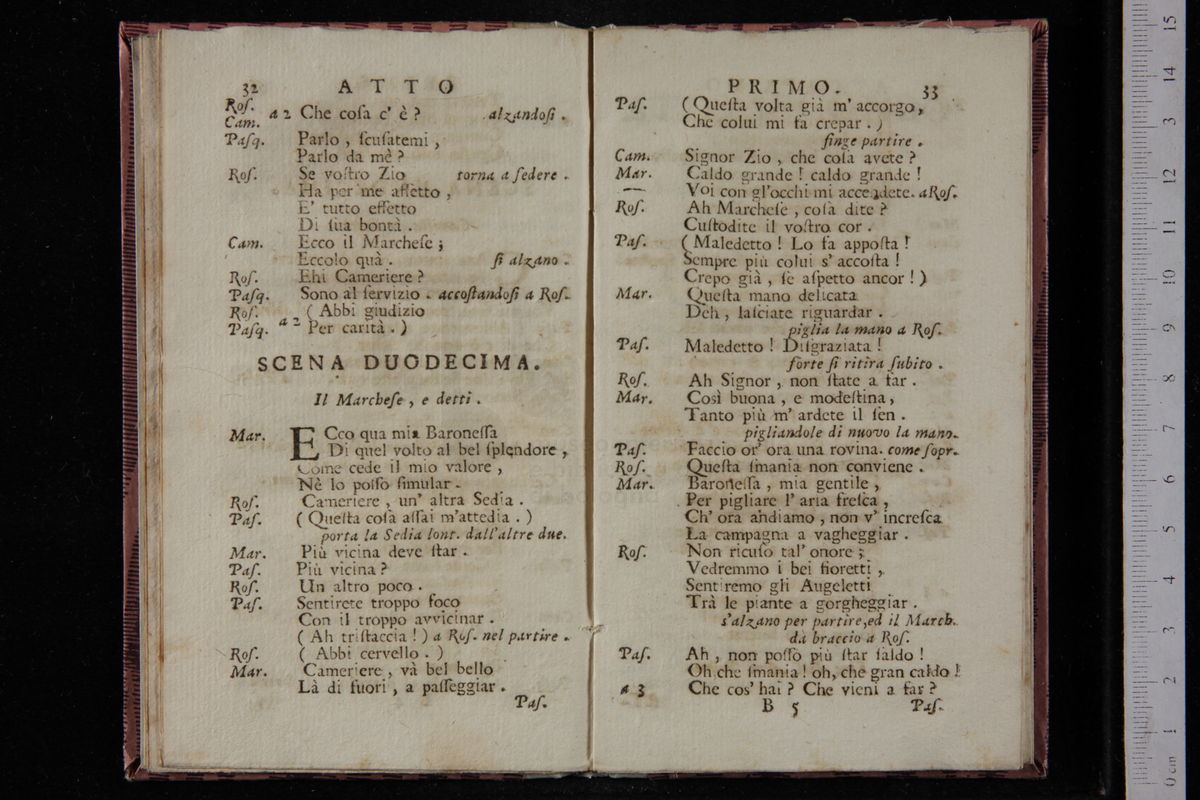 32 ATTO
Roſ.
Cam. a 2 Che coſa c' è ? alzandoſi .
Paſq. Parlo , ſcuſatemi ,
Parlo da mè ?
Roſ. Se voſtro Zio torna a ſedere .
Ha per me affetto ,
E' tutto effetto
Di ſua bontà .
Cam. Ecco il Marcheſe ;
Eccolo quà . ſi alzano .
Roſ. Ehi Cameriere ?
Paſq. Sono al ſervizio . accoſtandoſi a Roſ.
Roſ. ( Abbi giudizio
Paſq. a 2 Per carità . )
SCENA DUODECIMA.
Il Marcheſe , e detti .
Mar. ECco qua mia Baroneſſa
Di quel volto al bel ſplendore ,
Come cede il mio valore ,
Nè lo poſſo ſimular .
Roſ. Cameriere , un' altra Sedia .
Paſ. ( Queſta coſa aſſai m'attedia . )
porta la Sedia lont. dall'altre due.
Mar. Più vicina deve ſtar .
Paſ. Più vicina ?
Roſ. Un altro poco .
Paſ. Sentirete troppo foco
Con il troppo avvicinar .
( Ah triſtaccia ! ) a Roſ. nel partire .
Roſ. ( Abbi cervello . )
Mar. Cameriere , và bel bello
Là di fuori , a paſſeggiar .
Paſ.
PRIMO. 33
Paſ. (Queſta volta già m' accorgo,
Che colui mi fa crepar . )
finge partire .
Cam. Signor Zio , che coſa avete ?
Mar. Caldo grande ! caldo grande !
— Voi con gl'occhi mi accendete. a Roſ.
Roſ. Ah Marcheſe , coſa dite ?
Cuſtodite il voſtro cor .
Paſ. ( Maledetto ! Lo fa appoſta !
Sempre più colui s' accoſta !
Crepo già , ſe aſpetto ancor ! )
Mar. Queſta mano delicata
Deh , laſciate riguardar .
piglia la mano a Roſ.
Paſ. Maledetto ! Diſgraziata !
forte ſi ritira ſubito .
Roſ. Ah Signor , non ſtate a far .
Mar. Così buona , e modeſtina,
Tanto più m' ardete il ſen .
pigliandole di nuovo la mano.
Paſ. Faccio or' ora una rovina. come ſopr.
Roſ. Queſta ſmania non conviene .
Mar. Baroneſſa , mia gentile ,
Per pigliare l' aria freſca ,
Ch' ora andiamo , non v' increſca
La campagna a vagheggiar .
Roſ. Non ricuſo tal' onore ;
Vedremmo i bei fioretti ,
Sentiremo gli Augeletti
Trà le piante a gorgheggiar .
s'alzano per partire,ed il March.
da braccio a Roſ.
Paſ. Ah , non poſſo più ſtar ſaldo !
Oh che ſmania ! oh, che gran caldo !
a 3 Che cos' hai ? Che vieni a far ?
B 5 Paſ.
0 cm 1 2 3 4 5 6 7 8 9 10 11 12 13 14 15